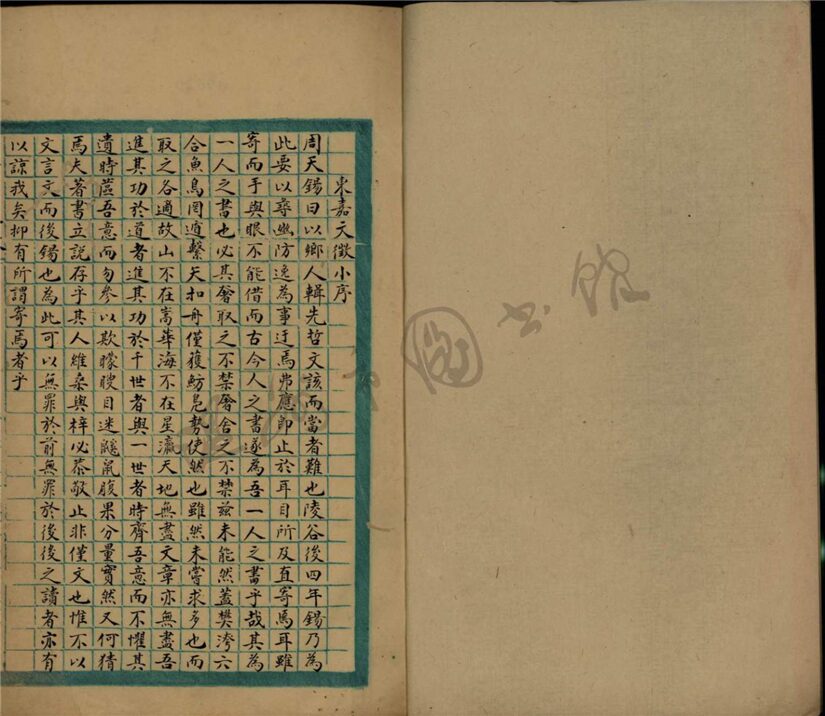 東嘉文徵小序
周天錫曰以鄉人輯先哲文該而當者難也陵谷後四年錫乃為
此要以尋幽防逸為事迂焉弗應即止於耳目所及直寄焉耳雖
寄而手與眼不能借而古今人之書遂為吾一人之書乎哉其為
一人之書也必其麕取之不禁麕舍之不禁茲未能然蓋樊澇六
合魚鳥罔遁繫天扣舟僅獲魴鳧勢使然也雖然未嘗求多也而
取之各適故山不在嵩華海不在星瀛天地無盡文章亦無盡吾
進其功於道者進其功於千世者與一世者時齊吾意而不懼其
遺時蒞吾意而勾參以欺矇瞍目迷鼷鼠腹果分量實然又何猜
焉夫著書立說存乎其人維桑與梓必恭敬止非僅文也惟不以
文言文而後錫也為此可以無罪於前無罪於後後之讀者亦有
以諒我矣抑有所謂寄焉者乎
圖書館